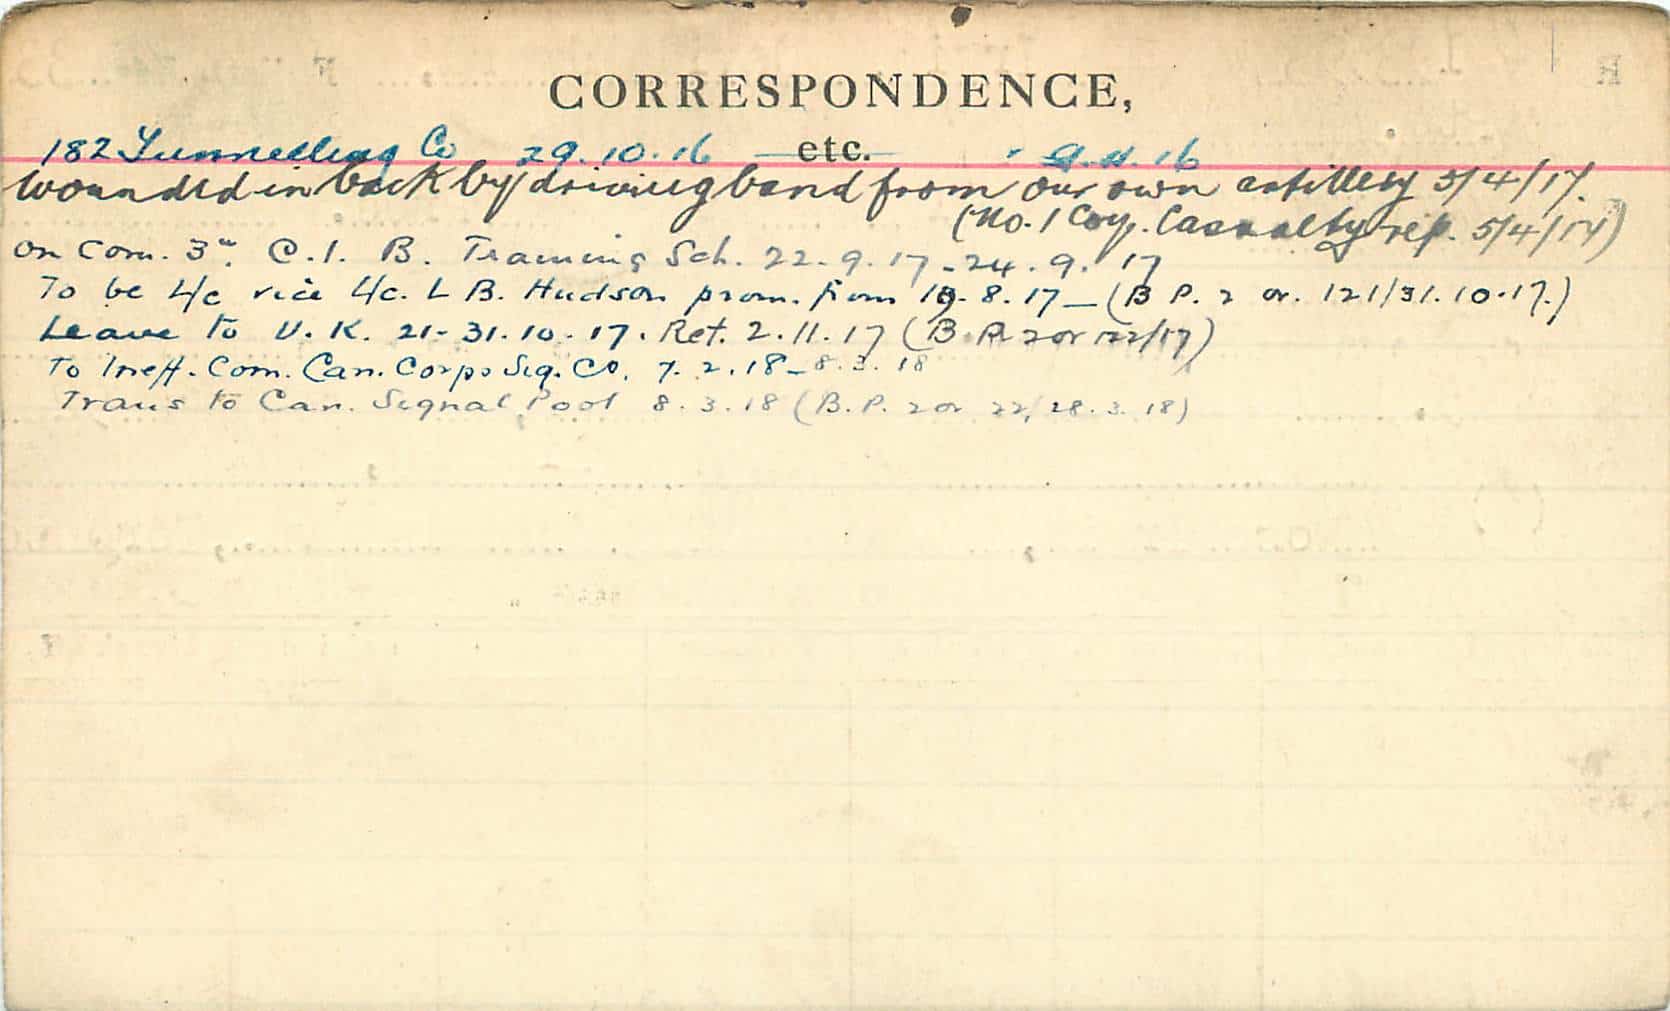 CORRESPONDENCE,
etc.
182 Tunnelling Co 29.10.16 — 9.11.16
Wounded in back by driving band from our own artillery 5/4/17.
(No. 1 Coy. Casualty rep. 5/4/17)
On Com. 3rd. C. I. B. Training Sch. 22-9.17-24.9.17
To be L/c vice L/c. L B. Hudson prom. from 19.8.17—(B P. 2 or. 121/31.10.17.)
Leave to U.K. 21-31.10.17. Ret. 2.11.17 (B.P. 2 or 122/17)
To Ineff. Com. Can. Corps Sig. Co. 7.2.18-8.3.18
Trans to Can. Signal Pool 8.3.18 (B.P. 2 or 22/28.3.18)